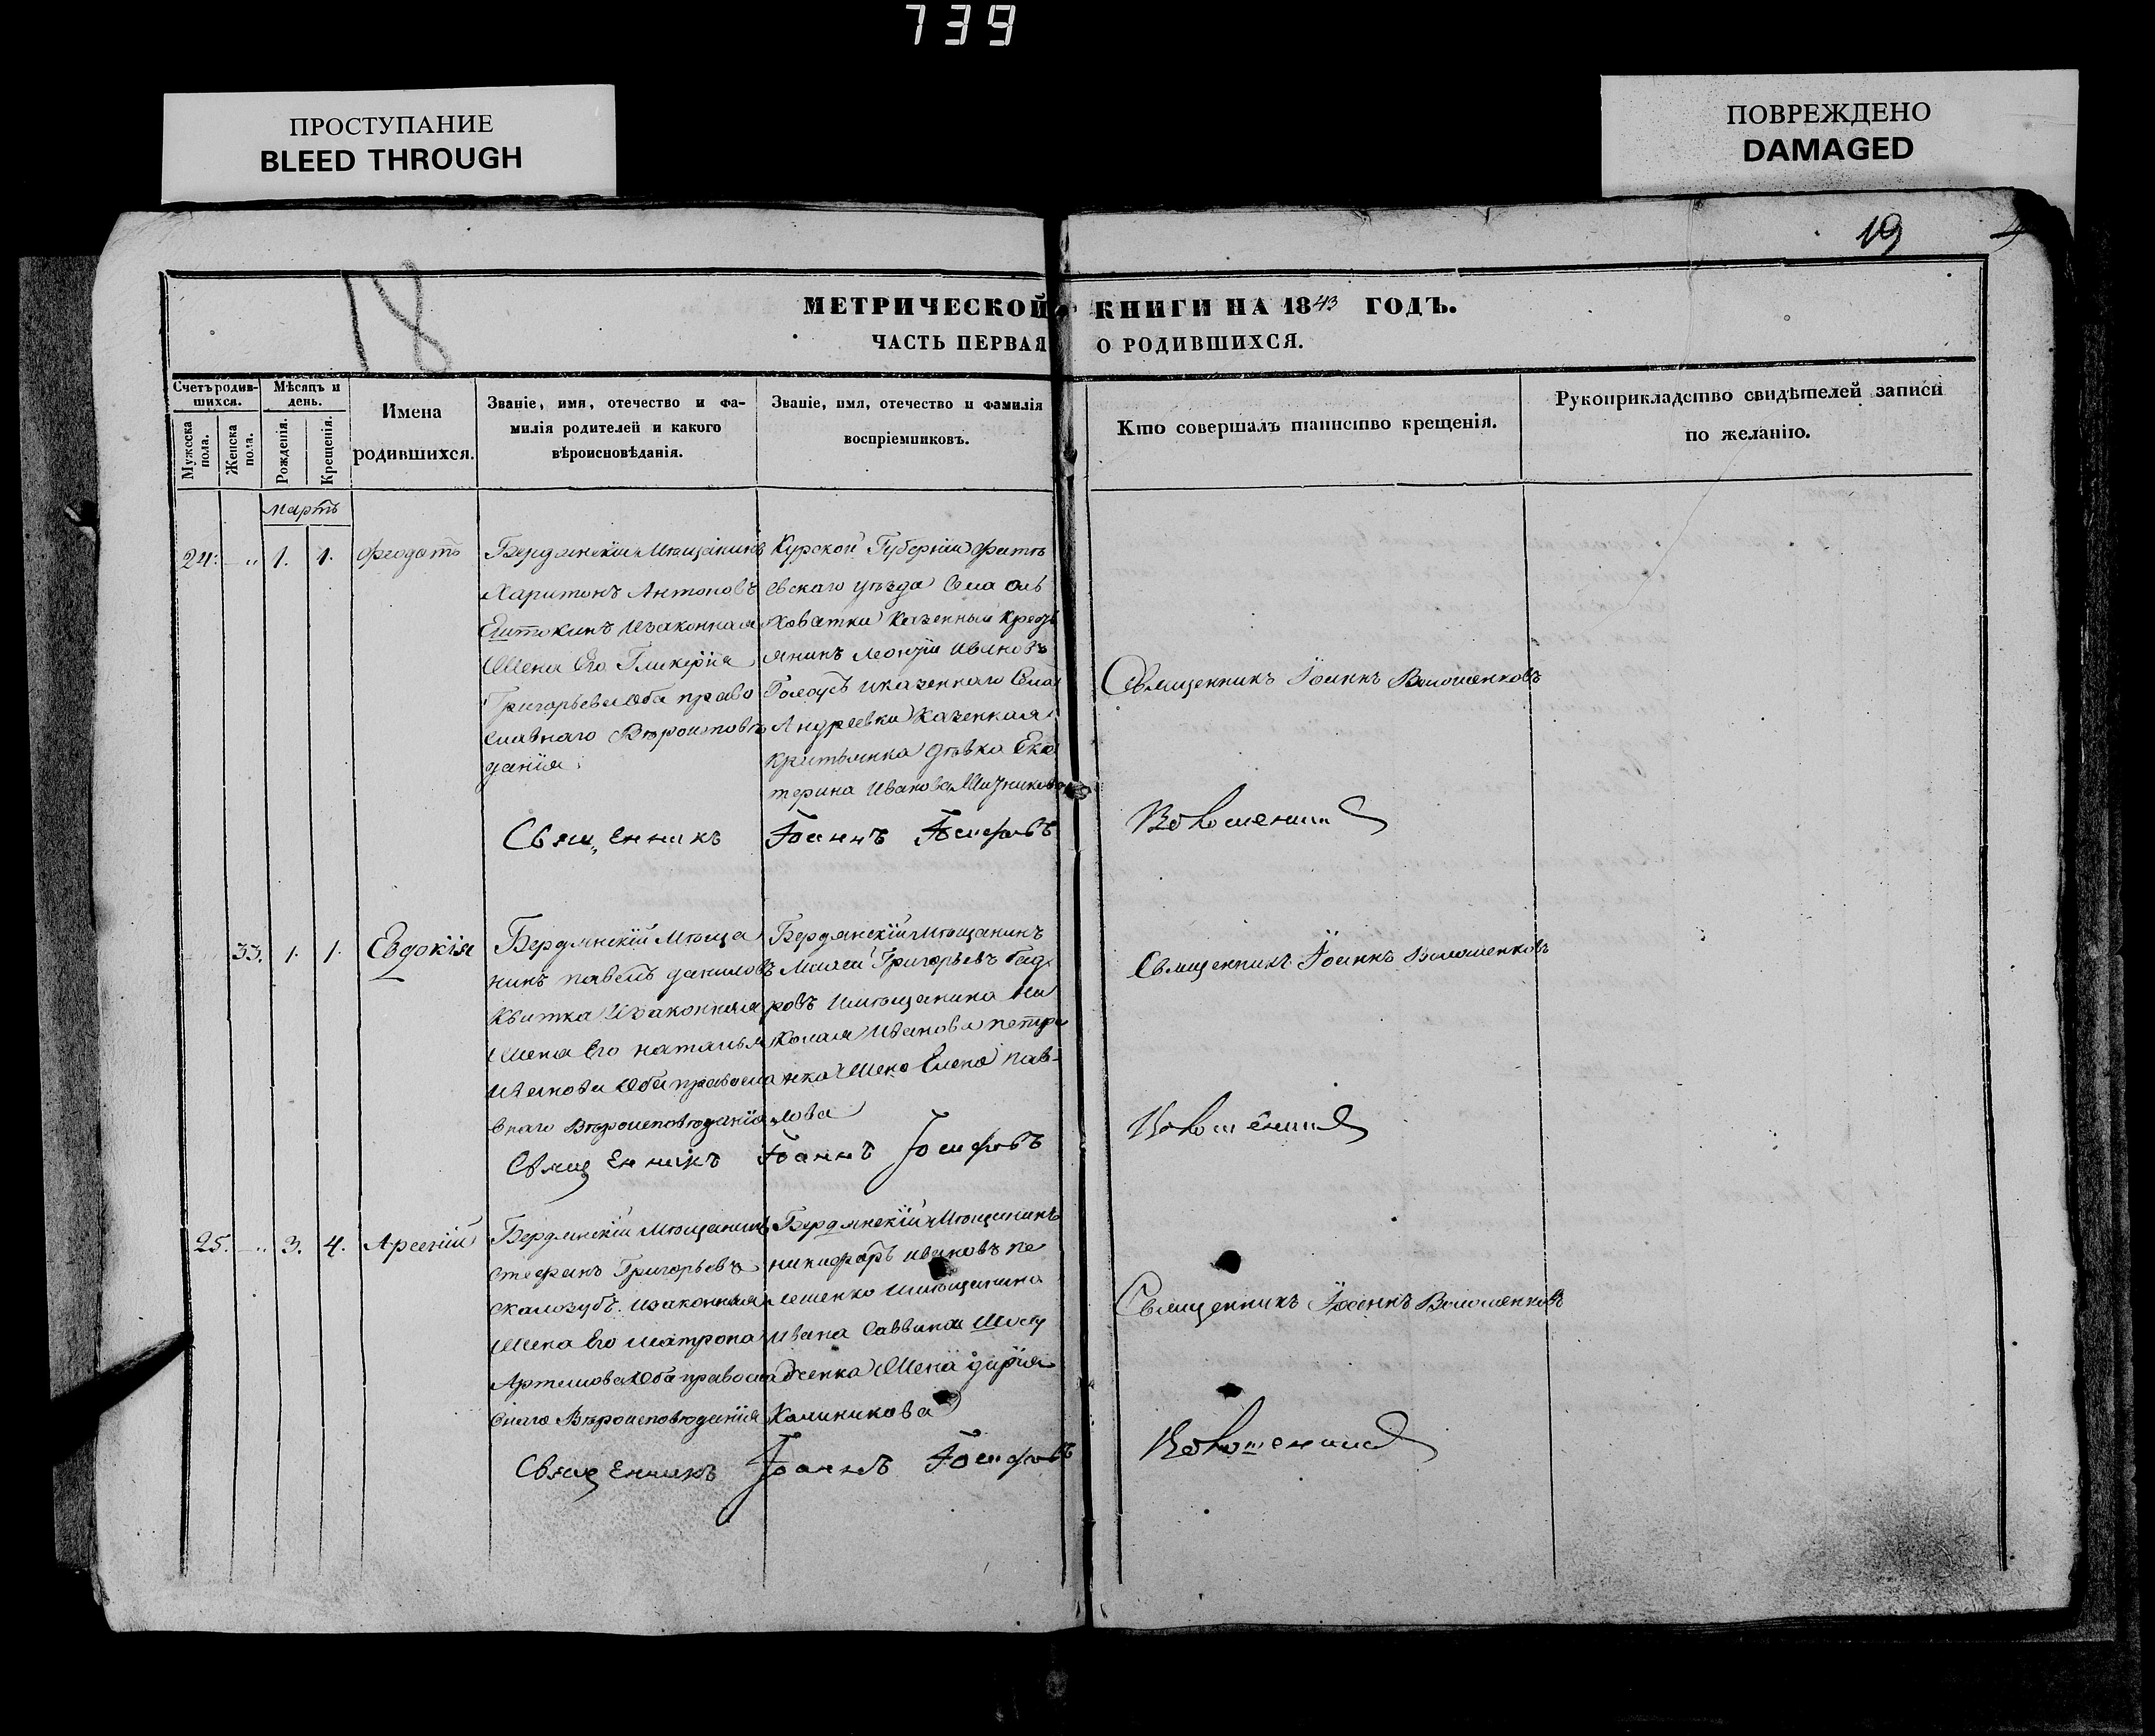 739
ПРОСТУПАНИЕ
BLEED THROUGH
ПОВРЕЖДЕНО
DAMAGED
19
18
МЕТРИЧЕСКОЙ КНИГИ НА 1843 ГОДЪ.
ЧАСТЬ ПЕРВАЯ О РОДИВШИХСЯ.
Счетъ родив-
шихся.
Мужеска
пола.
Женска
пола.
Мѣсяцъ и
день.
Рожденія.
Крещенія.
Имена
родившихся.
Званіе, имя, отечество и фа-
милія родителей и какого
вѣроисповѣданія.
Званіе, имя, отечество и фамилія
воспріемниковъ.
Кто совершалъ таинство крещенія.
Рукоприкладство свидѣтелей записи
по желанію.
Мартъ
24. " 1. 1. Феодотъ
Бердянскій Мѣщанинъ
Харитонъ Антоновъ
изаконная
Жена Его Гликерія
Григорьева Оба право
славнаго Вѣроисповѣ
данія.
Курской Губерніи Фате
евскаго уѣзда Села Оль
ховатки Казенный Крестъ
янинъ Леонтій Ивановъ
Голоусъ иказеннаго Села
Андреевки Казенная
Крестьянка дѣвка Ека
терина Иванова
Священникъ Іоаннъ Волошенковъ
Священникъ Іоаннъ Іосифовъ Волошенковъ
33. 1. 1. Евдокія
Бердянскій Мѣща
нинъ Павелъ Даниловъ
Квитка Изаконная
Жена Его Наталья
Иванова Оба правосла
внаго Вѣроисповѣданія
Бердянскій Мѣщанинъ
Моисей Григорьевъ
ровъ Имѣщанина Ни
колая Иванова Петре
нка Жена Елена Пав-
лова
Священникъ Іоаннъ Волошенковъ
Священникъ Іоаннъ Іосифовъ Волошенковъ
25. " 3. 4. Арсеній
Бердянскій Мѣщанинъ
Стефанъ Григорьевъ
Скалозубъ. Изаконная
Жена Его Матрона
Артемова Оба правосла
внаго Вѣроисповѣданія
Бердянскій Мѣщанинъ
Никифоръ Ивановъ Пе
лешенко Имѣщанина
Ивана Саввина
Жена Дарія
Калиникова
Священникъ Іоаннъ Волошенковъ
Священникъ Іоаннъ Іосифовъ Волошенковъ